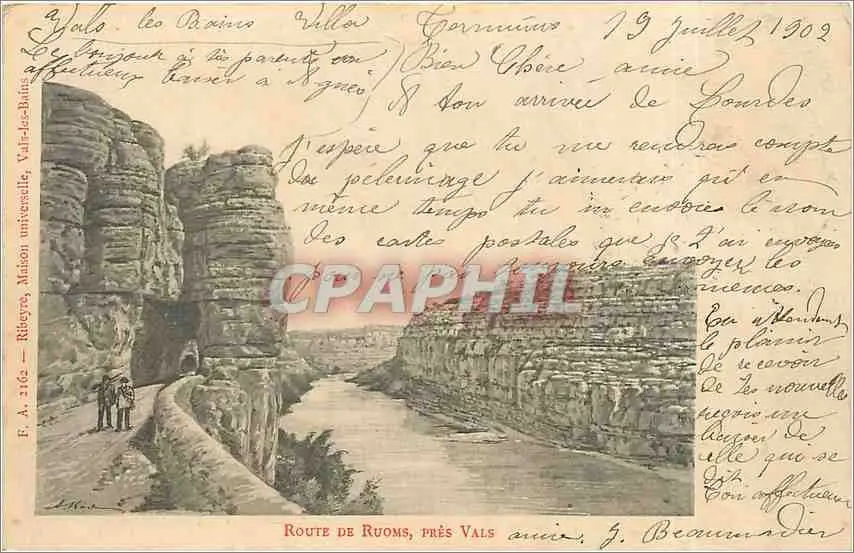 Vals les Bains Villa Terminus 19 Juillet 1902
Le bonjour à tes parents un
affectueux baiser a Agnès
Bien Chère amie
A ton arrivée de Lourdes
J'espère que tu me rendras compte
du pèlerinage j'aimerais qu'en
même temps tu m'envoies le nom
des cartes postales que je t'ai envoyées
pour ne pas toujours envoyer les
mêmes.
En attendant
le plaisir
de recevoir
de tes nouvelles
reçois un
baiser de
celle que se
dit
Ton affectueuse
amie. J. Beaumadier
CPAPHIL
F. A. 2162 — Ribeyre, Maison universelle, Vals-les-Bains
ROUTE DE RUOMS, PRÈS VALS